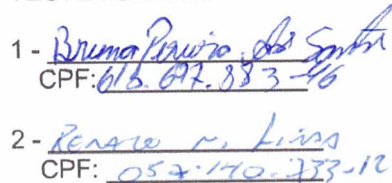 1 - Bruna Pereira dos Santos
CPF: 613.697.883-46
2 - Renato N. Lima
CPF: 057.140.733-12